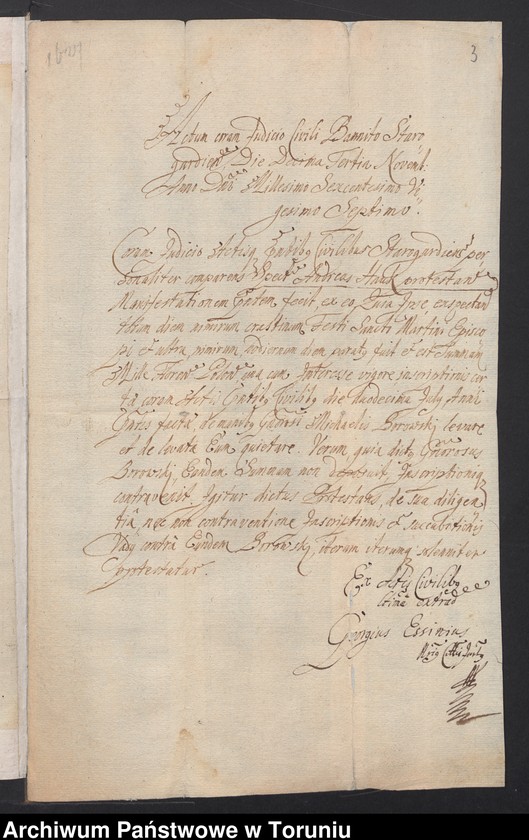 3
Actum coram Judicio Civili Bannito Staro
gardien. Die Decima Tertia Novemb.
Anno Dni Millesimo Sexcentesimo Vi
gesimo Septimo.
Coram Judicio Actisq pntibq Civilibus Starogardiens per
sonaliter comparens Andreas protestans
Manifestationem fecit, ex eo, quia Ipse expectand
diem nimirum crastinum Festi Sancti Martini Episco
pi et ultra, nimirum, hodiernum diem paratq fuit et est summam
Mille Floren Polon una cum Interesse vigore inscriptionis cir
ca coram Actis Civilibq die duodecima July Anni
pntis facta, de manibq Gnosi Michaelis Borowski levare
et de levata Eum quietare. Verum, quia dictq Gnorosus
Borowski, Eandem summam non, Inscriptioniq
contravenit. Igitur dictus Protestans, de sua diligen
tia nec non contraventione Inscriptionis et
Vady contra Eundem Borowski, iterum iterumq solenniter
protestatur.
Ex Actis Civilibq
extrad
Georgius Essinius
Archiwum Państwowe w Toruniu